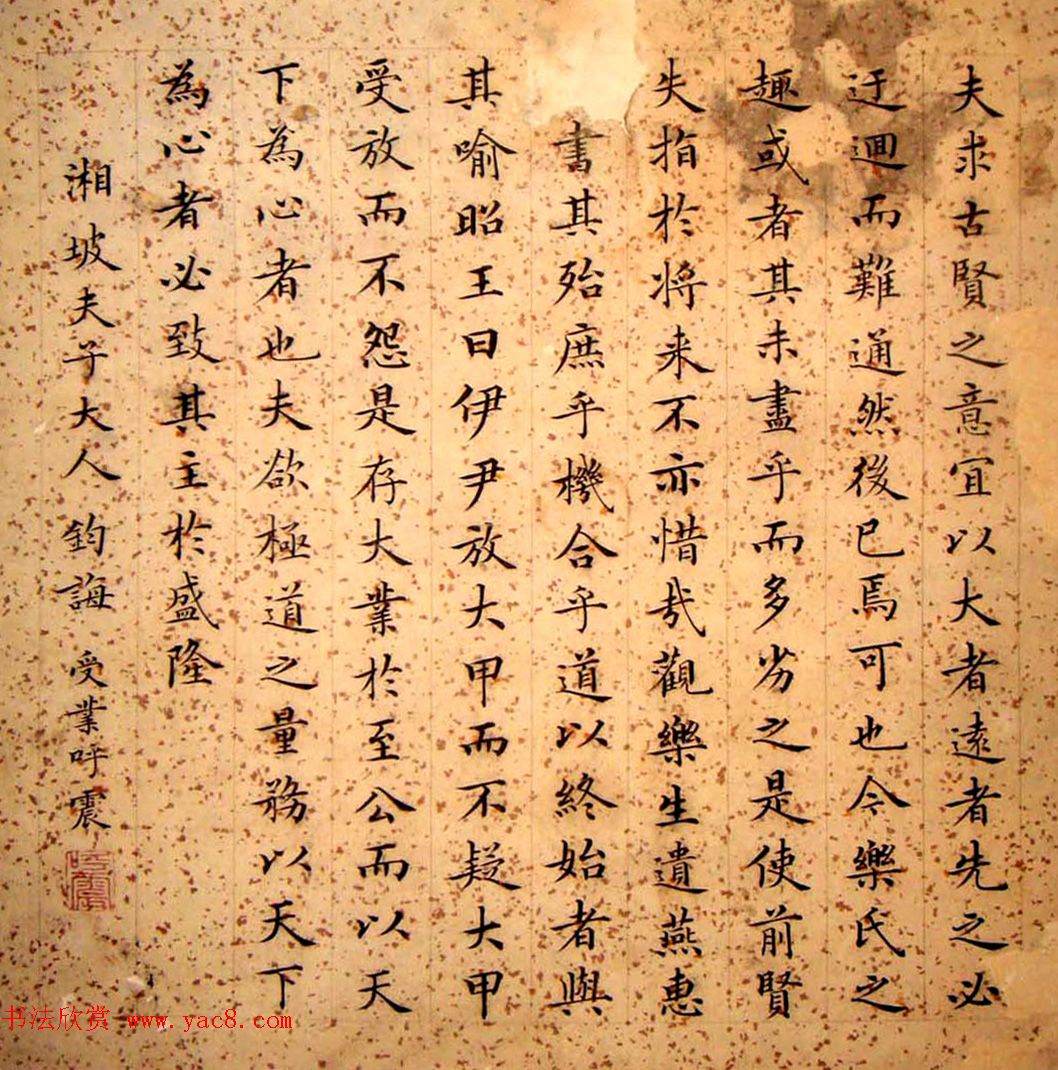 夫求古賢之意宜以大者遠者先之必
迂迴而難通然後已焉可也今樂氏之
趣或者其未盡乎而多劣之是使前賢
失指於將来不亦惜哉觀樂生遺燕惠
書其殆庶乎機合乎道以終始者與
其喻昭王曰伊尹放大甲而不疑大甲
受放而不怨是存大業於至公而以天
下為心者也夫欲極道之量務以天下
為心者必致其主於盛隆
湘坡夫子大人 鈞誨 受業呼震
书法欣赏 www.yac8.com